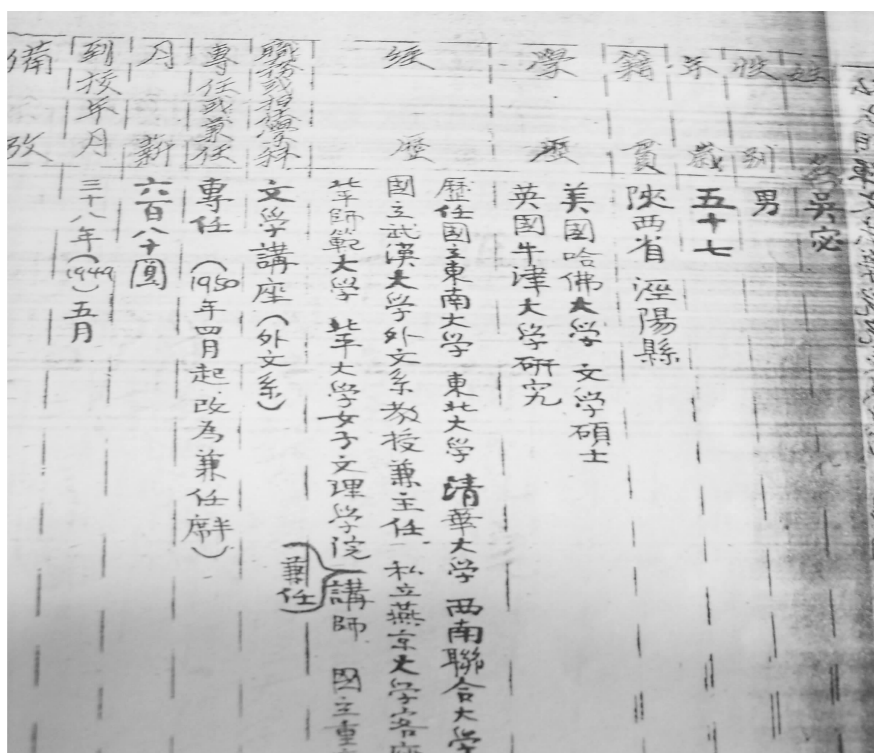 姓名 吳宓
性別 男
年歲 五十七
籍貫 陝西省 涇陽縣
學歷 美國哈佛大学 文学碩士
英國牛津大学研究
經歷 歷任国立東南大学 東北大学 清華大学 西南聯合大学
國立武漢大学外文系教授兼主任 私立燕京大学客座
北平師範大学 北平大学女子文理学院 講師 國立重
兼任
職務或担任學科 文学講座(外文系)
專任或兼任 專任 (1950年四月起,改為兼任)
月薪 六百八十圓
到校年月 三十八年(1949)五月
備攷